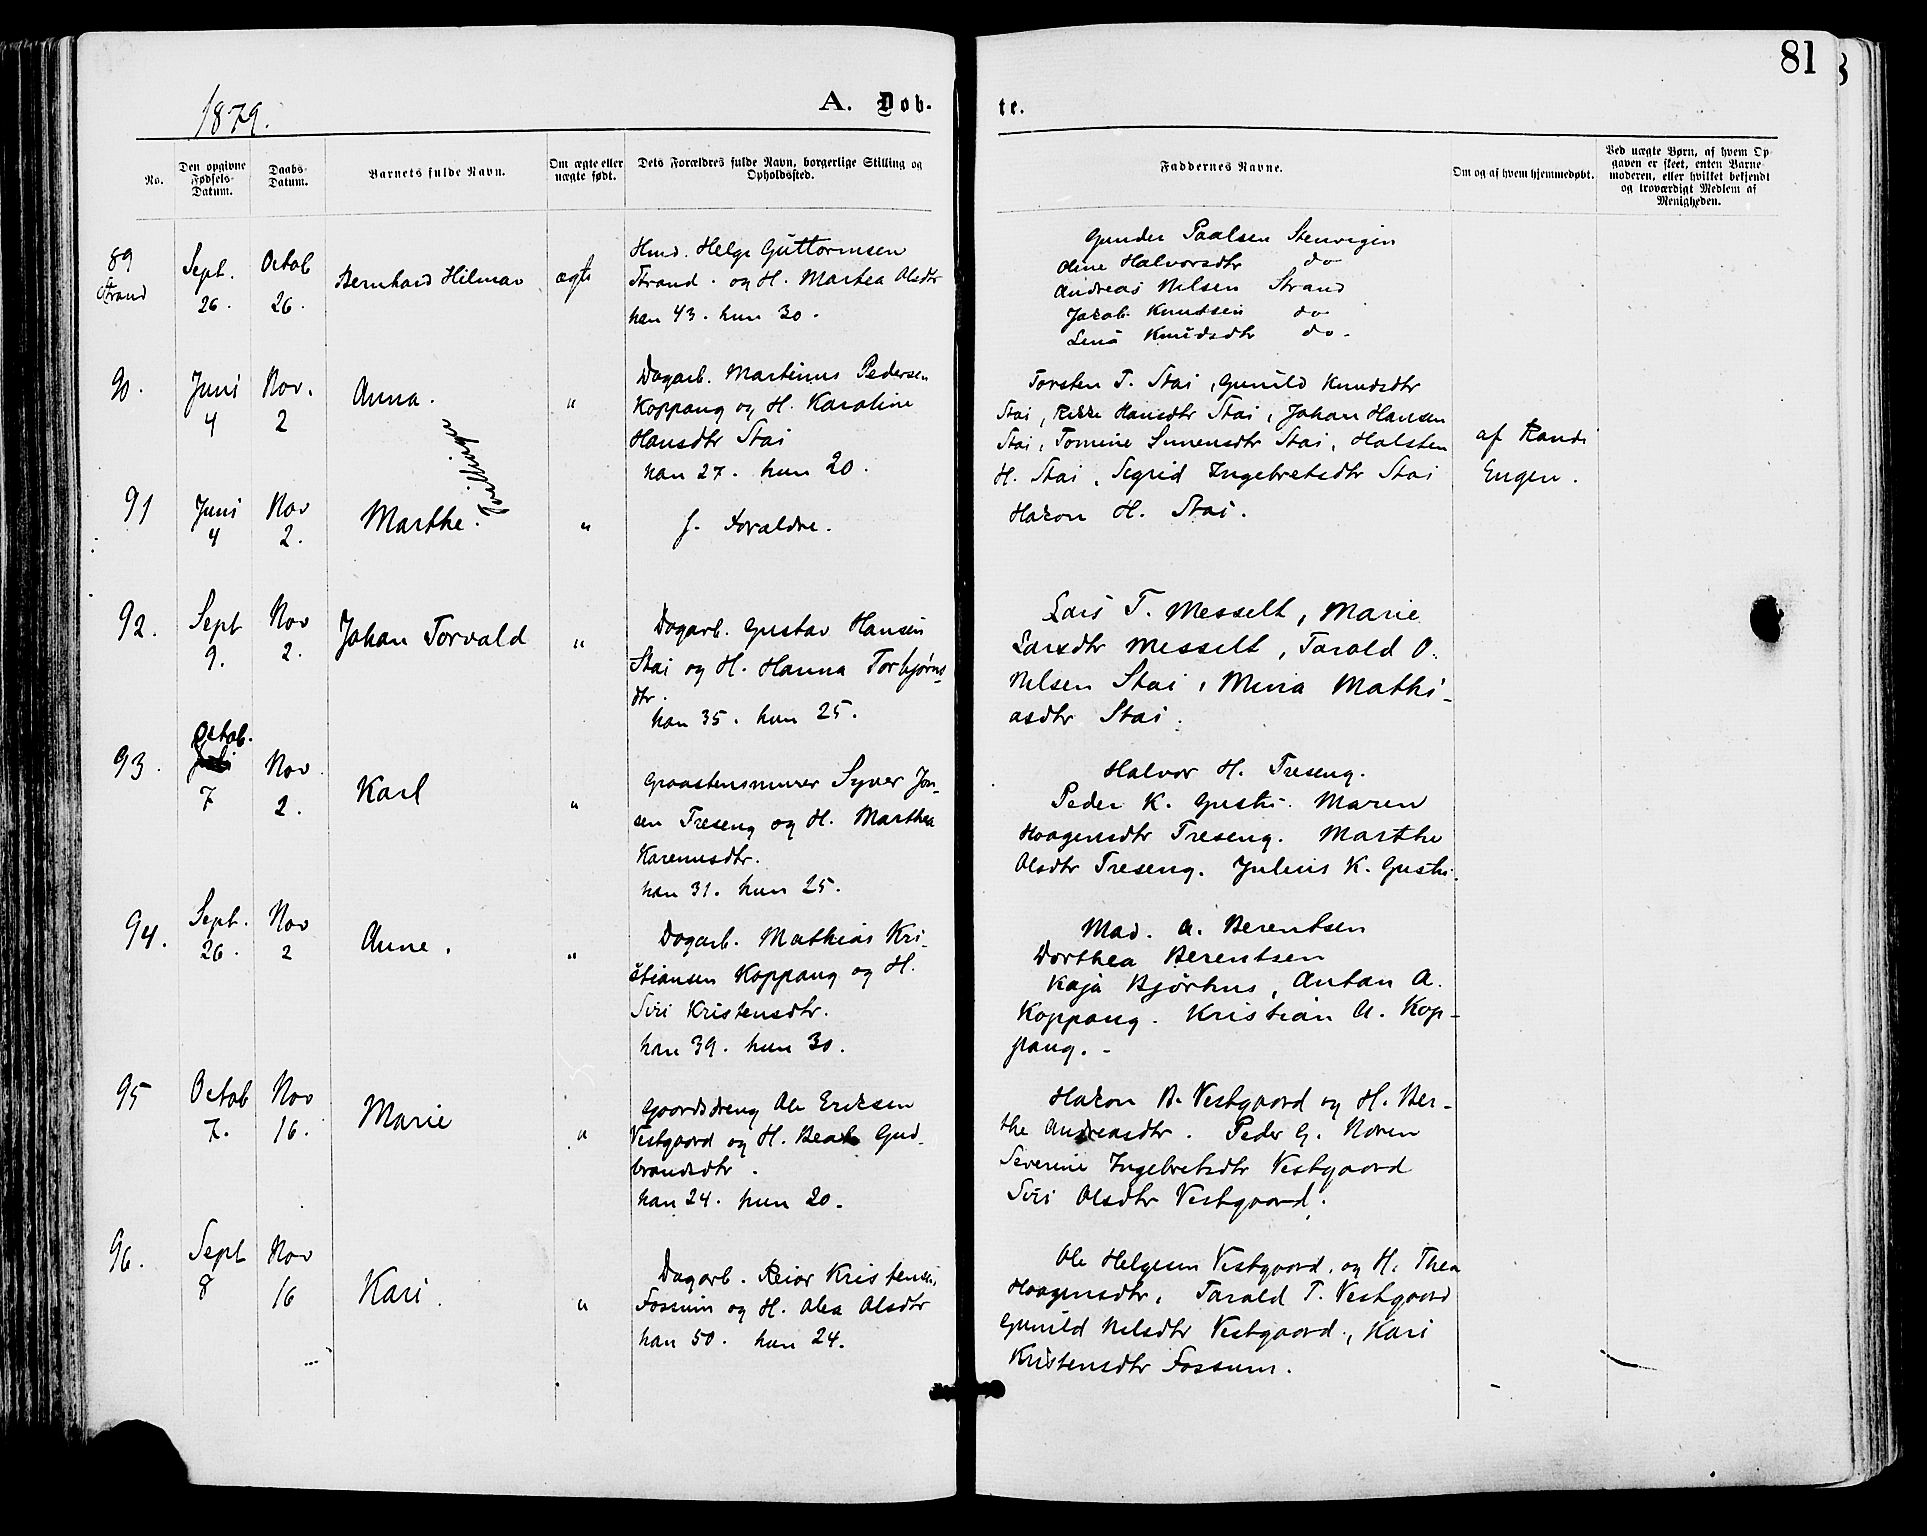 81
1879.
A. Døb-
te.
No.
Den opgivne Fødsels-Datum.
Daabs-Datum.
Barnets fulde Navn.
Om ægte eller uægte født.
Dets Forældres fulde Navn, borgerlige Stilling og Opholdssted.
Faddernes Navne.
Om og af hvem hjemmedøbt.
Ved uægte Børn, af hvem Opgaven er skeet, enten Barnemoderen, eller hvilket bekjendt og troværdigt Medlem af Menigheden.
89
Strand
Sept.
26.
Octob
26.
Bernhard Hilmar
ægte
Hmd. Helge Guttormsen
Strand. og H. Marthea Olsdtr
han 43. hun 30.
Gunder Paalsen Stenvigen
Oline Halvorsdtr do
Andreas Nilsen Strand
Jakob Knudsen do
Lena Knudsdtr do.
90.
Juni
4
Nov.
2
Anna.
"
Dagarb. Martinus Pedersen
Koppang og H. Karoline
Hansdtr Stai
han 27. hun 20.
Torsten T. Stai, Gunild Knudsdtr
Stai, Rikke Hansdtr Stai, Johan Hansen
Stai, Tomine Simensdtr Stai, Halsten
H. Stai, Sigrid Ingebretsdtr Stai
Hakon H. Stai.
af Randi
Engen.
91
Juni
4
Nov
2.
Marthe.
Tvillinger
"
f. Foraldre.
92.
Sept
9.
Nov
2.
Johan Torvald
"
Dagarb. Gustav Hansen
Stai og H. Hanna Torbjørns-
dtr.
han 35. hun 25.
Lars T. Messelt, Marie
Larsdtr Messelt, Tarald O.
Nilsen Stai, Mina Mathi-
asdtr Stai.
93.
Octob.
7
Nov
2.
Karl
"
Graastensmurer Syver Jon-
sen Treseng og H. Marthea
Karenusdtr.
han 31. hun 25.
Halvor H. Treseng.
Peder K. Gusti. Maren
Haagensdtr Treseng. Marthe
Olsdtr Treseng. Julius K. Gusti.
94.
Sept.
26.
Nov
2
Anne.
"
Dagarb. Mathias Kri-
stiansen Koppang og H.
Siri Kristensdtr.
han 39. hun 30.
Mad. A. Berentsen
Dorthea Berentsen
Kaja Bjørhus, Anton A.
Koppang. Kristian A. Kop-
pang.-
95
Octob
7.
Nov
16.
Marie
"
Gaardsdreng Ole Eriksen
Vestgaard og H. Beate Gud-
brandsdtr.
han 24. hun 20.
Hakon B. Vestgaard og H. Ber-
the Andreasdtr. Peder G. Noren
Severine Ingebretsdtr Vestgaard
Siri Olsdtr Vestgaard.
96.
Sept
8
Nov
16
Kari.
"
Dagarb. Reior Kristensen
Fossum og H. Olea Olsdtr
han 50. hun 24.
Ole Helgesen Vestgaard, og H. Thea
Haagensdtr, Tarald T. Vestgaard
Gunild Nilsdtr Vestgaard, Kari
Kristensdtr Fossum.